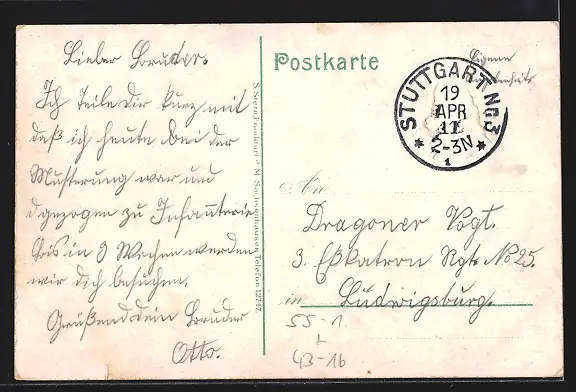 Lieber Bruder.
Ich teile dir kurz mit
daß ich heute bei der
Musterung war und
gezogen zu Infanterie
bis in 3 Wochen werden
wir dich besuchen.
Grüßend dein Bruder
Otto.
S. Stern, Frankfurt a. M. Sachsenhausen, Telefon 12747.
Postkarte
Eigene
STUTTGART No 3
19
APR
11
2-3N
* 1 *
An
Dragoner Vogt.
3. Eskatron Rgt. No 25.
in Ludwigsburg.
55-1
+
43-16